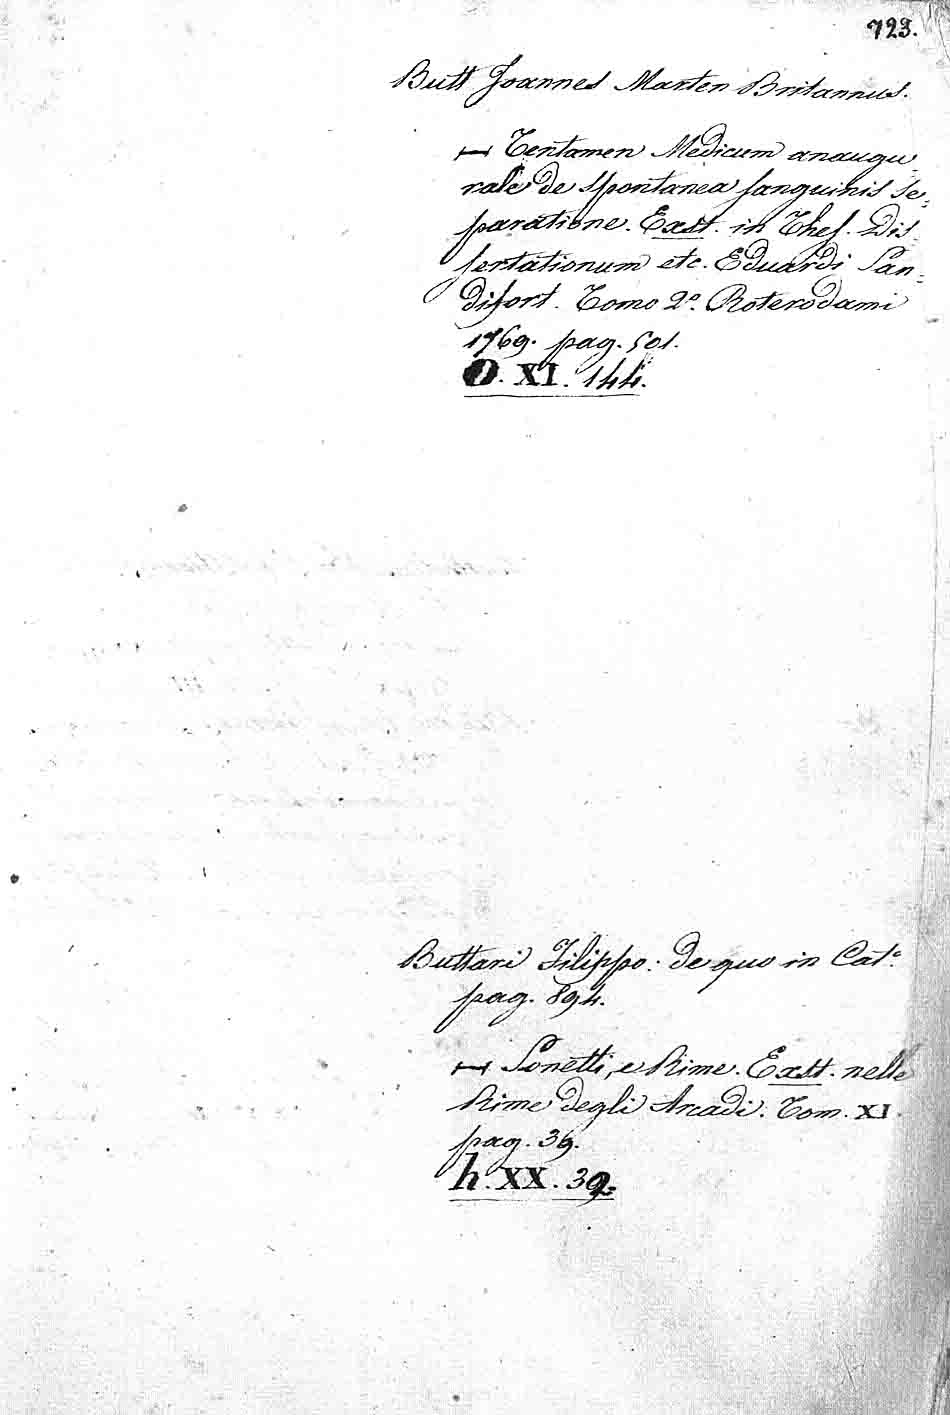 723.
Butt Joannes Marten Britannus.
— Tentamen Medicum anaugu,
rale de spontanea sanguinis se,
paratione. Exst. in Thes. Dis,
sertationum etc. Eduardi San,
difort. Tomo 2º. Roterodami
1769. pag. 501.
O. XI. 144.
Buttari Filippo: de quo in Catº.
pag. 894.
— Sonetti, e Rime. Exst. nelle
Rime degli Arcadi. Tom. XI.
pag. 39.
h. XX. 39.